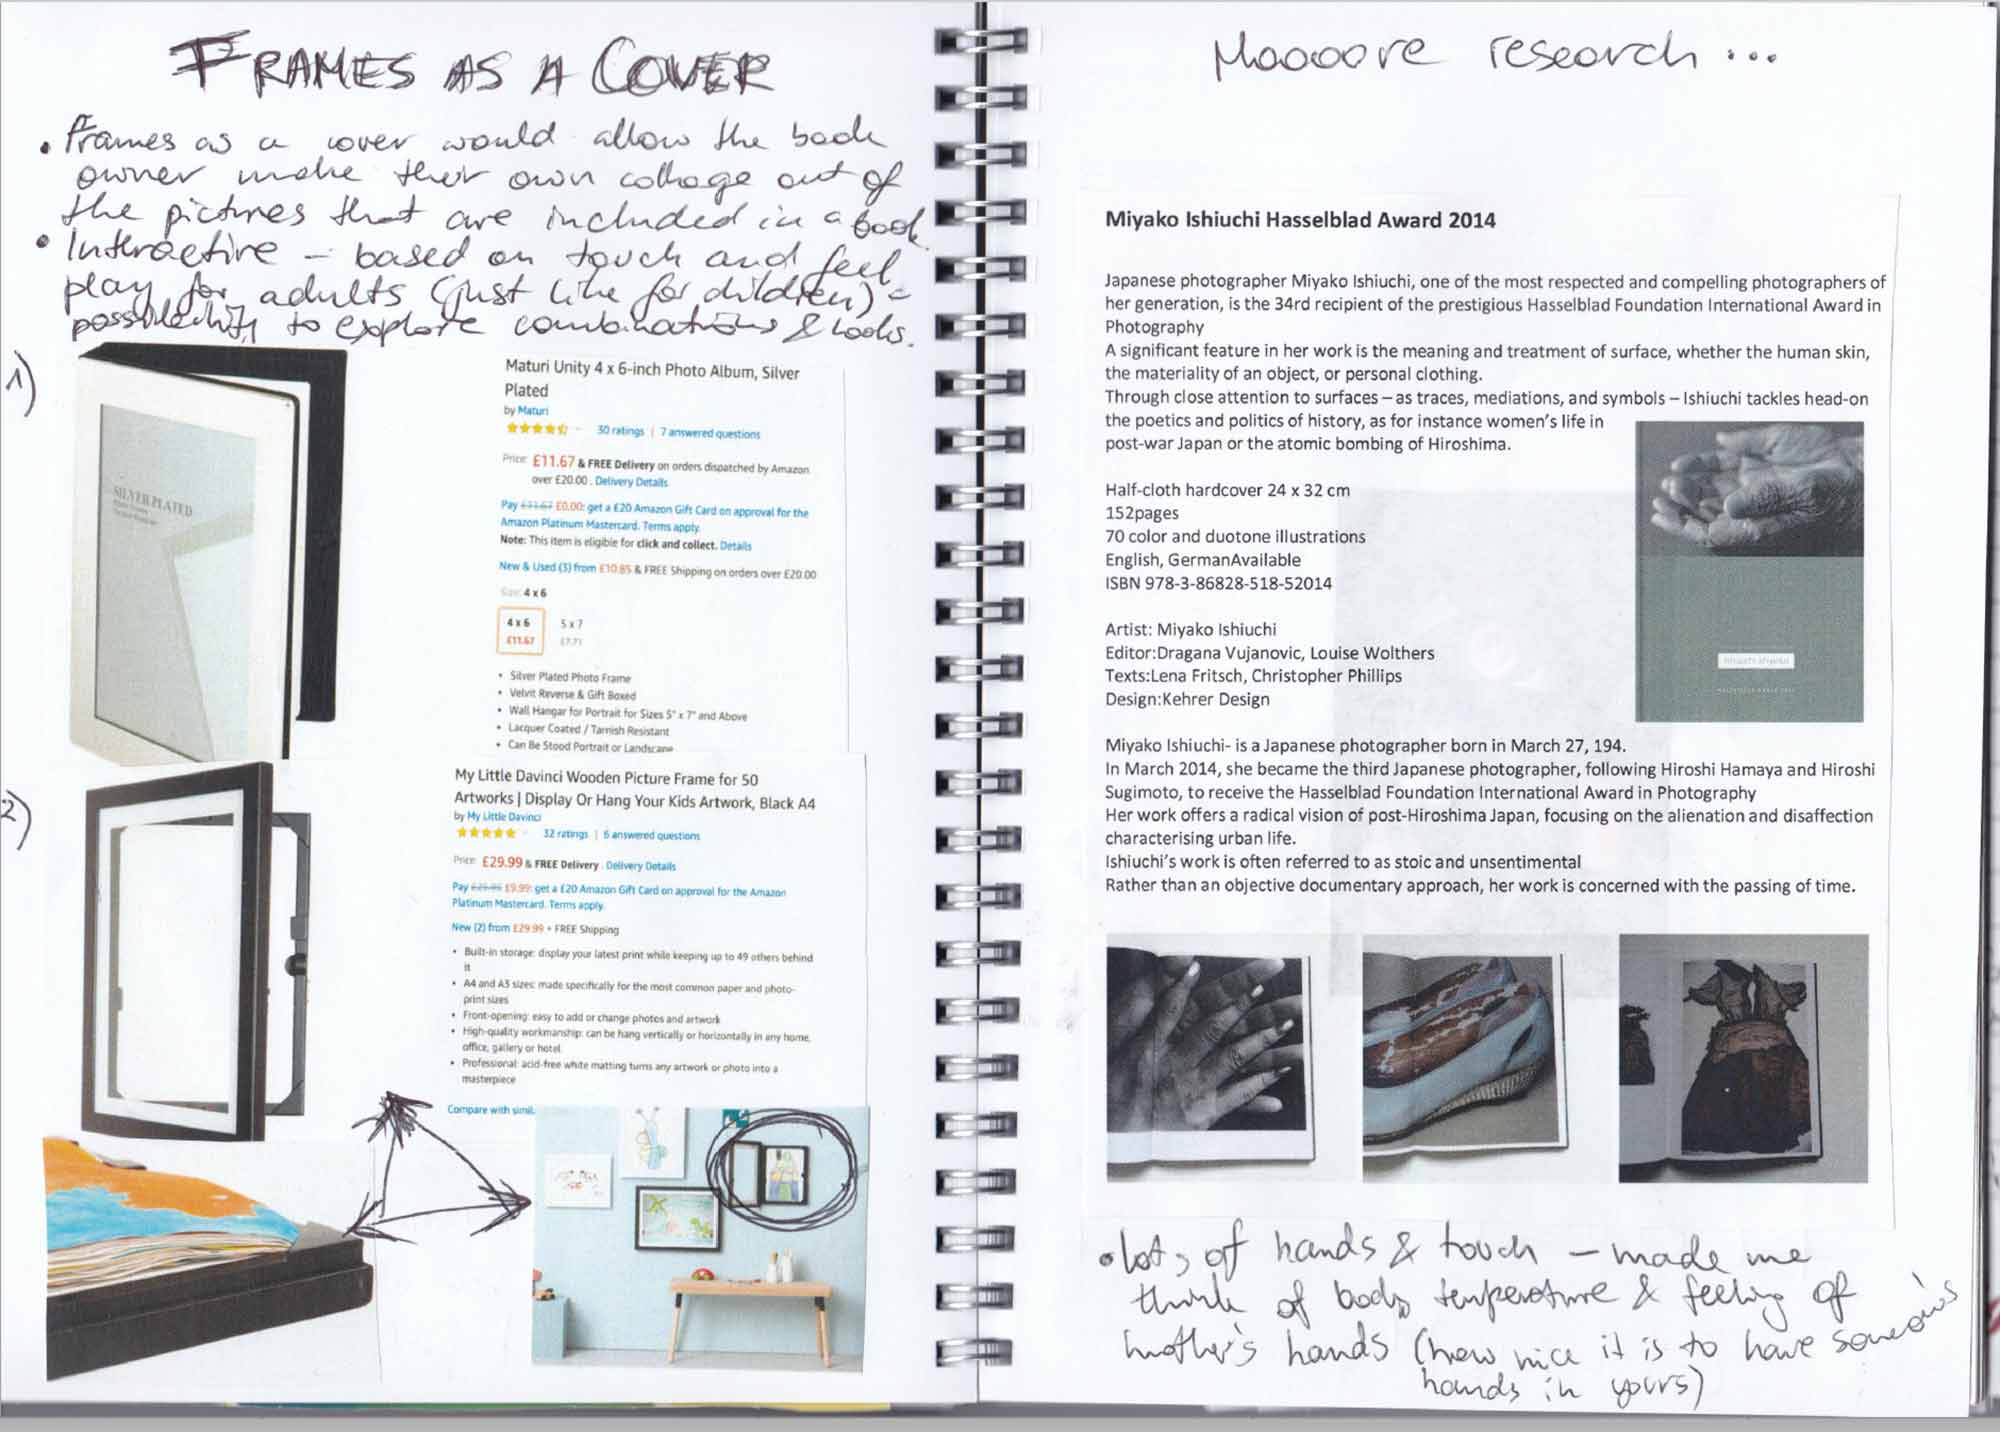 FRAMES AS A COVER
• Frames as a cover would allow the book
owner make their own collage out of
the pictures that are included in a book.
• Interactive – based on touch and feel
play for adults (just like for children) –
possibility to explore combinations & looks.
1)
SILVER PLATED
Maturi Unity 4 x 6-inch Photo Album, Silver
Plated
by Maturi
30 ratings | 7 answered questions
Price: £11.67 & FREE Delivery on orders dispatched by Amazon
over £20.00 . Delivery Details
Pay £11.67 £0.00: get a £20 Amazon Gift Card on approval for the
Amazon Platinum Mastercard. Terms apply.
Note: This item is eligible for click and collect. Details
New & Used (3) from £10.85 & FREE Shipping on orders over £20.00
Size: 4 x 6
4 x 6 5 x 7
£11.67 £7.71
• Silver Plated Photo Frame
• Velvit Reverse & Gift Boxed
• Wall Hangar for Portrait for Sizes 5" x 7" and Above
• Lacquer Coated / Tarnish Resistant
• Can Be Stood Portrait or Landscape
2)
My Little Davinci Wooden Picture Frame for 50
Artworks | Display Or Hang Your Kids Artwork, Black A4
by My Little Davinci
32 ratings | 6 answered questions
Price: £29.99 & FREE Delivery . Delivery Details
Pay £29.99 £9.99: get a £20 Amazon Gift Card on approval for the Amazon
Platinum Mastercard. Terms apply.
New (2) from £29.99 + FREE Shipping
• Built-in storage: display your latest print while keeping up to 49 others behind
it
• A4 and A3 sizes: made specifically for the most common paper and photo-
print sizes
• Front-opening: easy to add or change photos and artwork
• High-quality workmanship: can be hang vertically or horizontally in any home,
office, gallery or hotel
• Professional: acid-free white matting turns any artwork or photo into a
masterpiece
Compare with simil
Moooore research ...
Miyako Ishiuchi Hasselblad Award 2014
Japanese photographer Miyako Ishiuchi, one of the most respected and compelling photographers of
her generation, is the 34rd recipient of the prestigious Hasselblad Foundation International Award in
Photography
A significant feature in her work is the meaning and treatment of surface, whether the human skin,
the materiality of an object, or personal clothing.
Through close attention to surfaces – as traces, mediations, and symbols – Ishiuchi tackles head-on
the poetics and politics of history, as for instance women's life in
post-war Japan or the atomic bombing of Hiroshima.
Half-cloth hardcover 24 x 32 cm
152pages
70 color and duotone illustrations
English, GermanAvailable
ISBN 978-3-86828-518-52014
Artist: Miyako Ishiuchi
Editor:Dragana Vujanovic, Louise Wolthers
Texts:Lena Fritsch, Christopher Phillips
Design:Kehrer Design
Miyako Ishiuchi- is a Japanese photographer born in March 27, 194.
In March 2014, she became the third Japanese photographer, following Hiroshi Hamaya and Hiroshi
Sugimoto, to receive the Hasselblad Foundation International Award in Photography
Her work offers a radical vision of post-Hiroshima Japan, focusing on the alienation and disaffection
characterising urban life.
Ishiuchi's work is often referred to as stoic and unsentimental
Rather than an objective documentary approach, her work is concerned with the passing of time.
• lots of hands & touch – made me
think of body temperature & feeling of
mother's hands (how nice it is to have someone's
hands in yours)